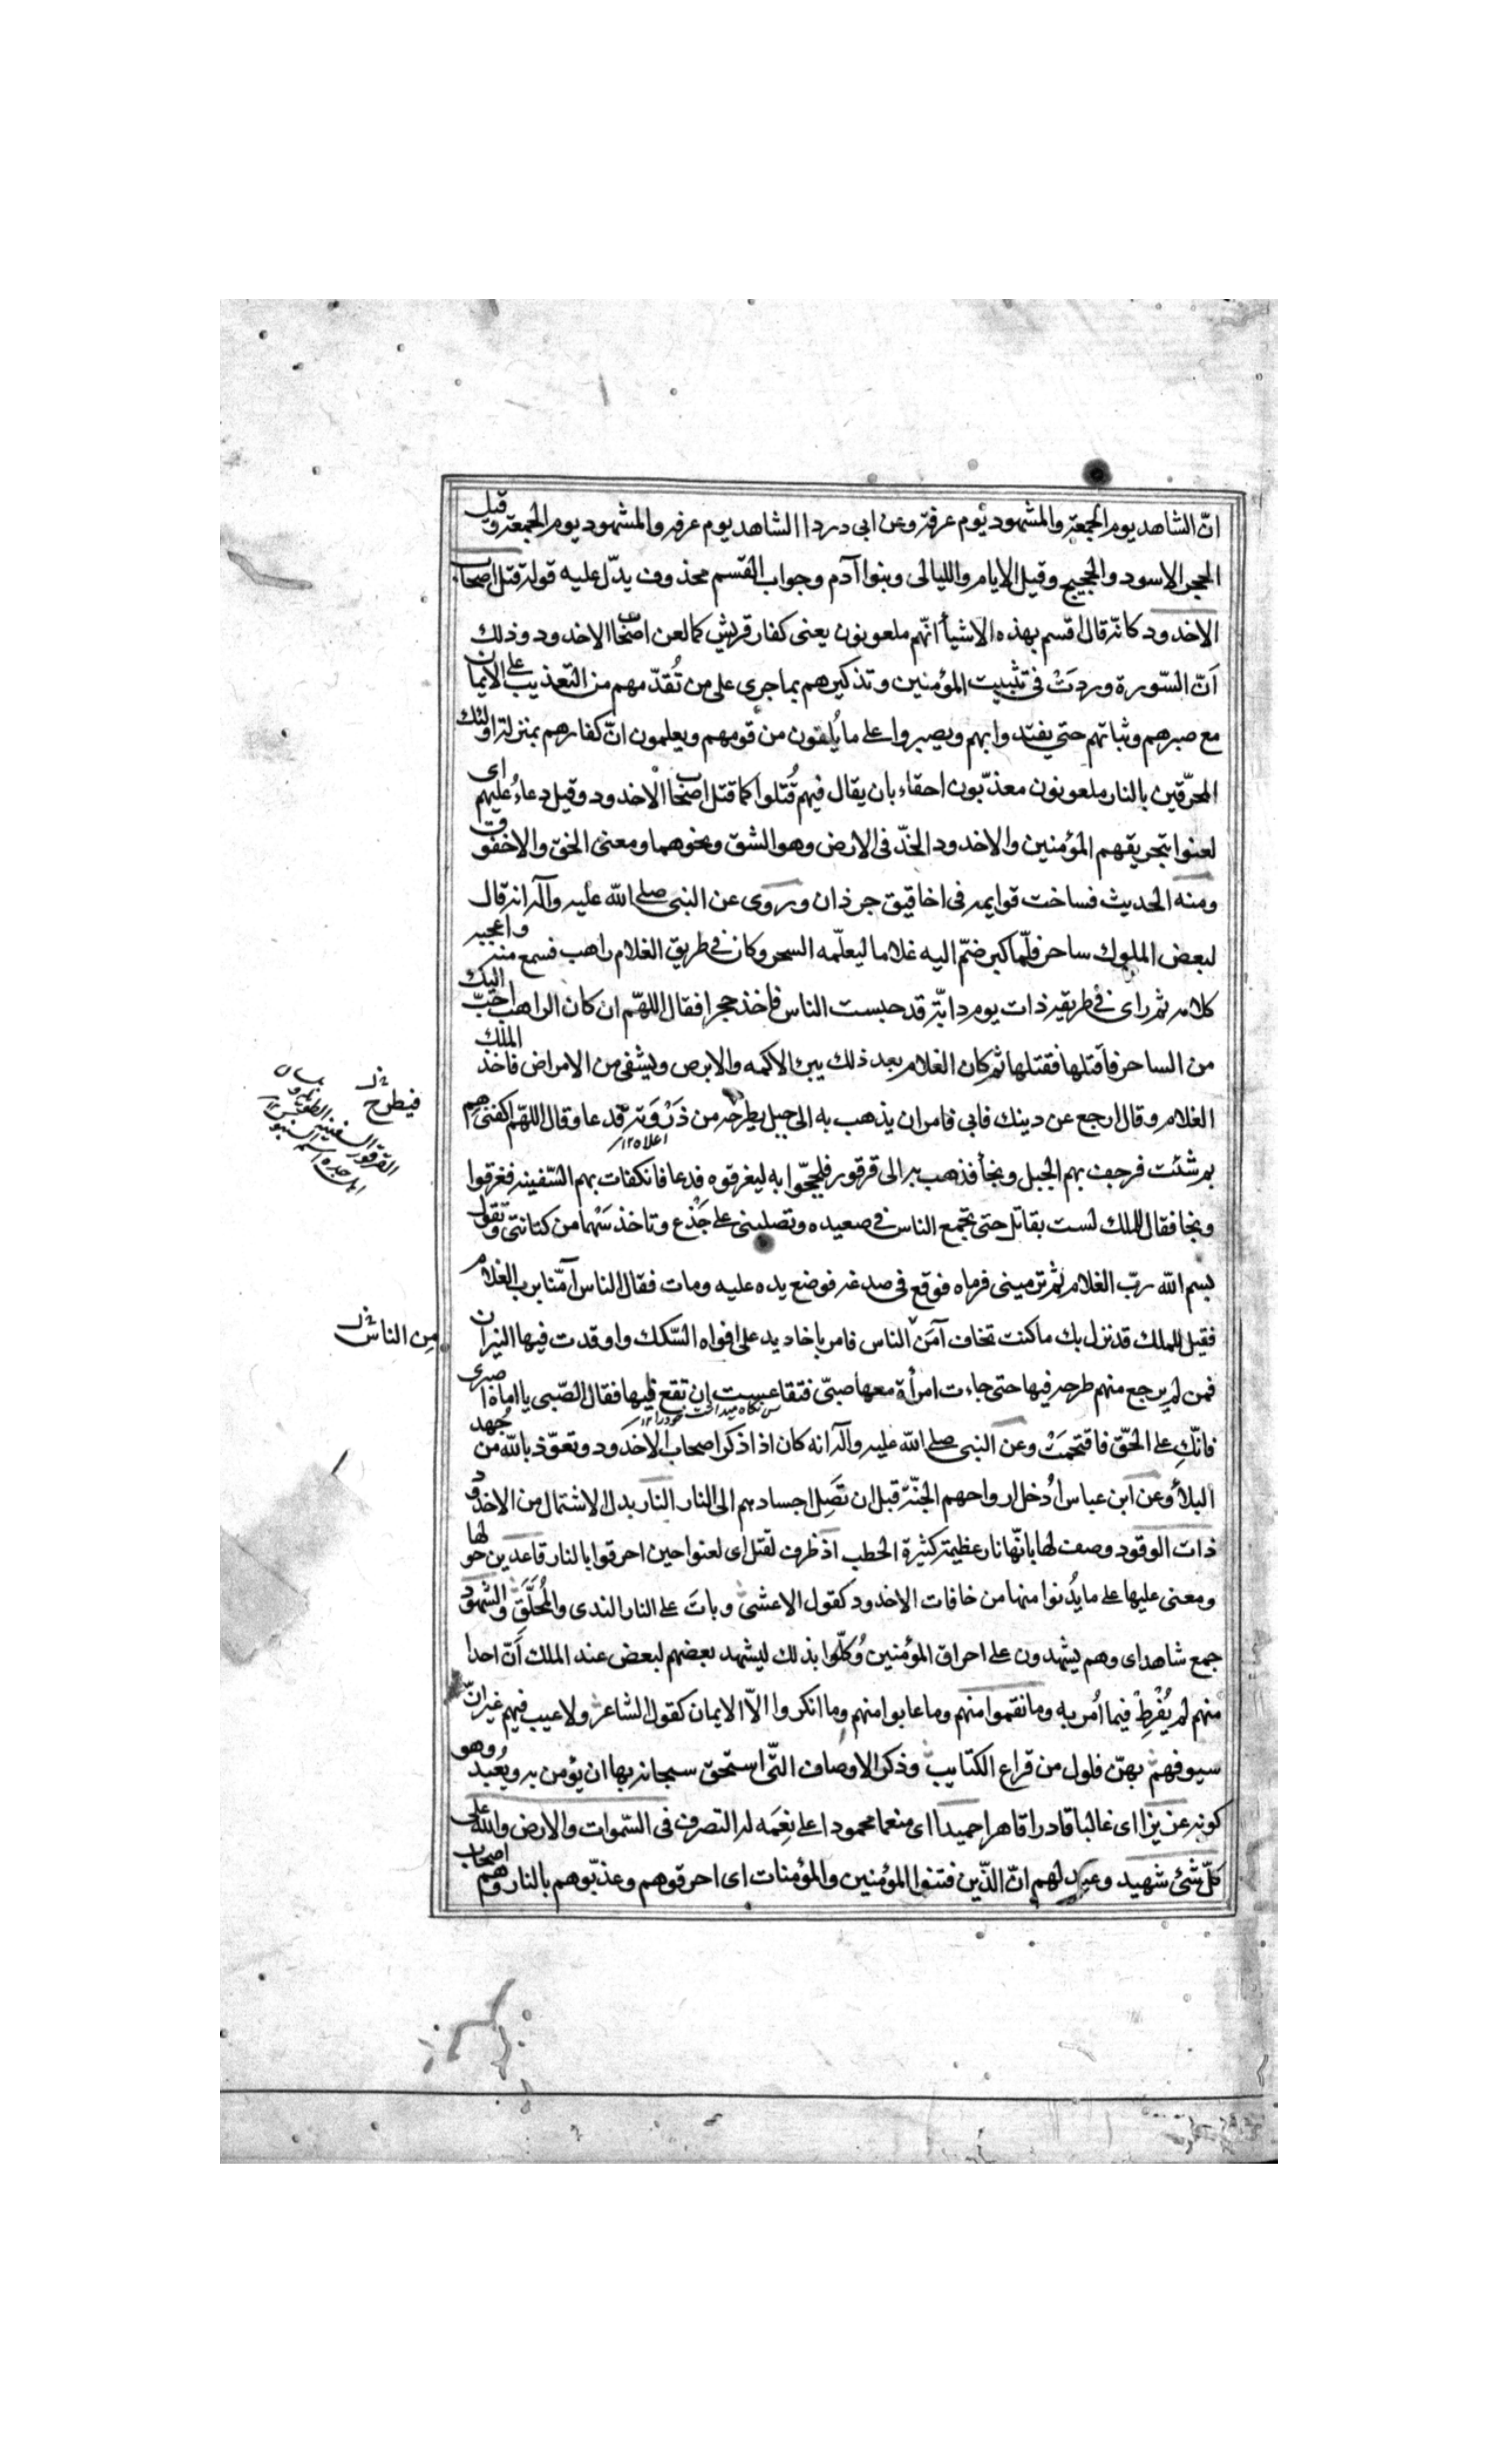 انّ الشاهد يوم الجمعة والمشهود يوم عرفة وعن ابى دردا الشاهد يوم عرفه والمشهود يوم الجمعة وقيل
الحجر الاسود والحجيج وقيل الايام والليالى وبنوا آدم وجواب القسم محذوف يدلّ عليه قوله قتل اصحاب
الاخدود كانّه قال اقسم بهذه الاشيأ انّهم ملعونون يعنى كفار قريش كما لعن اصحاب الاخدود وذلك
اَنّ السّورة وردَتْ فى تثبيت المؤمنين وتذكيرهم بما جرى على من تُقدّمهم من التعذيب على الايمان
مع صبرهم وثباتهم حتى يفتدوا بهم ويصبروا على ما يُلقون من قومهم ويعلمون انّ كفارهم بمنزلة اولئك
المحرّقين بالنار ملعونون معذّبون احقاء بان يقال فيهم قُتلوا كما قتل اصحاب الاخدود وقيل دعاءُ عليهم اى
لعنوا بتحريقهم المؤمنين والاخدود الخدّ فى الارض وهو الشق ونحوهما ومعنى الخق والاخقوق
ومنه الحديث فساخت قوايمه فى اخاقيق جرذان وروى عن النبى صلى الله عليه وآله انه قال
لبعض الملوك ساحر فلّما كبر ضمّ اليه غلاما ليعلّمه السحر وكان فى طريق الغلام راهب فسمع منه واعجبه
كلامه ثم راى فى طريقه ذات يوم دابّة قد حبست الناس فاخذ حجرا فقال اللهمّ ان كان الراهب احبّ اليك
من الساحر فاقتلها فقتلها ثم كان الغلام بعد ذلك يبرئ الاكمه والابرص ويشفى من الامراض فاخذ الملك
الغلام وقال ارجع عن دينك فابى فامر ان يذهب به الى جبل يطرحه من ذَرْوَته فدعا وقال اللهمّ اكفنيهم
اعلاه ۱۲
بم شئت فرجف بهم الجبل ونجأ فذهب به الى قرقور فلججّوا به ليغرقوه فدعا فانكفات بهم السّفينه فغرقوا
ونجا فقال للملك لست بقاتلى حتى تجمع الناس فى صعيده وتصلبنى على جَذْع وتاخذ سَهْما من كنانتى وتقول
بسم الله ربّ الغلام ثم ترمينى فرماه فوقع فى صدغه فوضع يده عليه ومات فقال الناس آمّنا برب الغلام
فقيل للملك قد نزل بك ما كنت تخاف آمَن الناس فامر باخاديد على افواه السّكك واوقدت فيها النيران
فمن لم يرجع منهم طرحه فيها حتى جاءت امرأة معها صبىّ فتقاعست ان تقع فيها فقال الصّبى يا اماه اصبرى
فانّكِ على الحّق فاقتحمَتْ وعن النبى صلى الله عليه وآله انه كان اذا ذكر اصحاب الاخدود وتعوّذ بالله من جُهد
البلأ وعن ابن عباس اُدخل ارواحهم الجنّة قبل ان تَصِل اجسادهم الى النار النار بدل الاشتمال من الاخدود
ذات الوقود وصف لها بانّها نار عظيمة كثيرة الحطب اذ ظرف لقتل اى لعنوا حين احرقوا بالنار قاعدين حولها
ومعنى عليها على ما يُدنوا منها من خافات الاخدود كقول الاعشى وباتَ على النار الندى والمُحَلَّق والشهود
جمع شاهد اى وهم يشهدون على احراق المؤمنين وُكّلوا بذلك ليشهد بعضهم لبعض عند الملك اَنّ احدا
منهم لم يُفْرِطْ فيما اُمر به وما نقموا منهم وما عابوا منهم وما انكروا الاّ الايمان كقول الشاعر ولا عيب فيهم غير انّ
سيوفهم بهنّ فلول من قراع الكتايب وذكر الاوصاف التّى استحّق سبحانه بها ان يؤمن به ويُعبد وهو
كونه عزيزا اى غالبا قادرا قاهرا حميدا اى منعما محمودا على نِعَمه له التصرف فى السّموات والارض والله على
كلّ شئ شهيد وعيد لهم انّ الذّين فتنوا المؤمنين والمؤمنات اى احرقوهم وعذبّوهم بالنار وهم اصحاب
فيطرح
القرقور السفينة الطويلة
من الناس